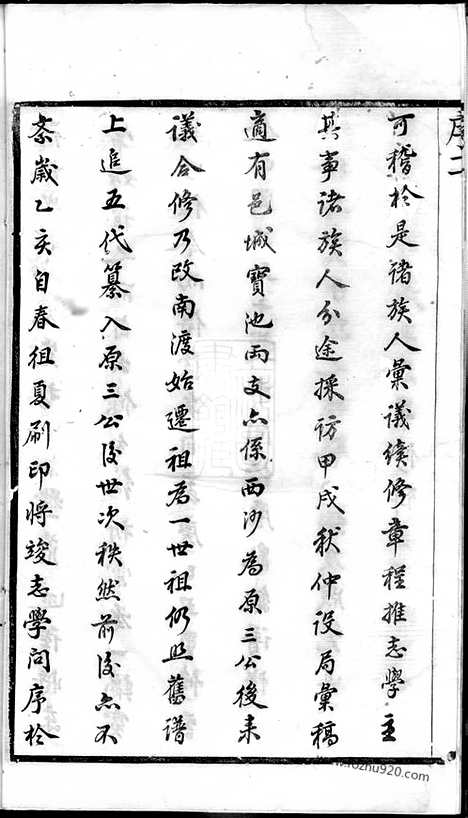 序二
可稽於是諸族人彙議續修章程推志學主
其事諸族人分途採訪甲戌秋仲設局彙稿
適有邑城寶池兩支亦係西沙為原三公後来
議合修乃改南渡始遷祖為一世祖仍照舊譜
上追五代纂入原三公後世次秩然前後亦不
紊歲乙亥自春徂夏刷印將竣志學問序於
www.fozhu920.com